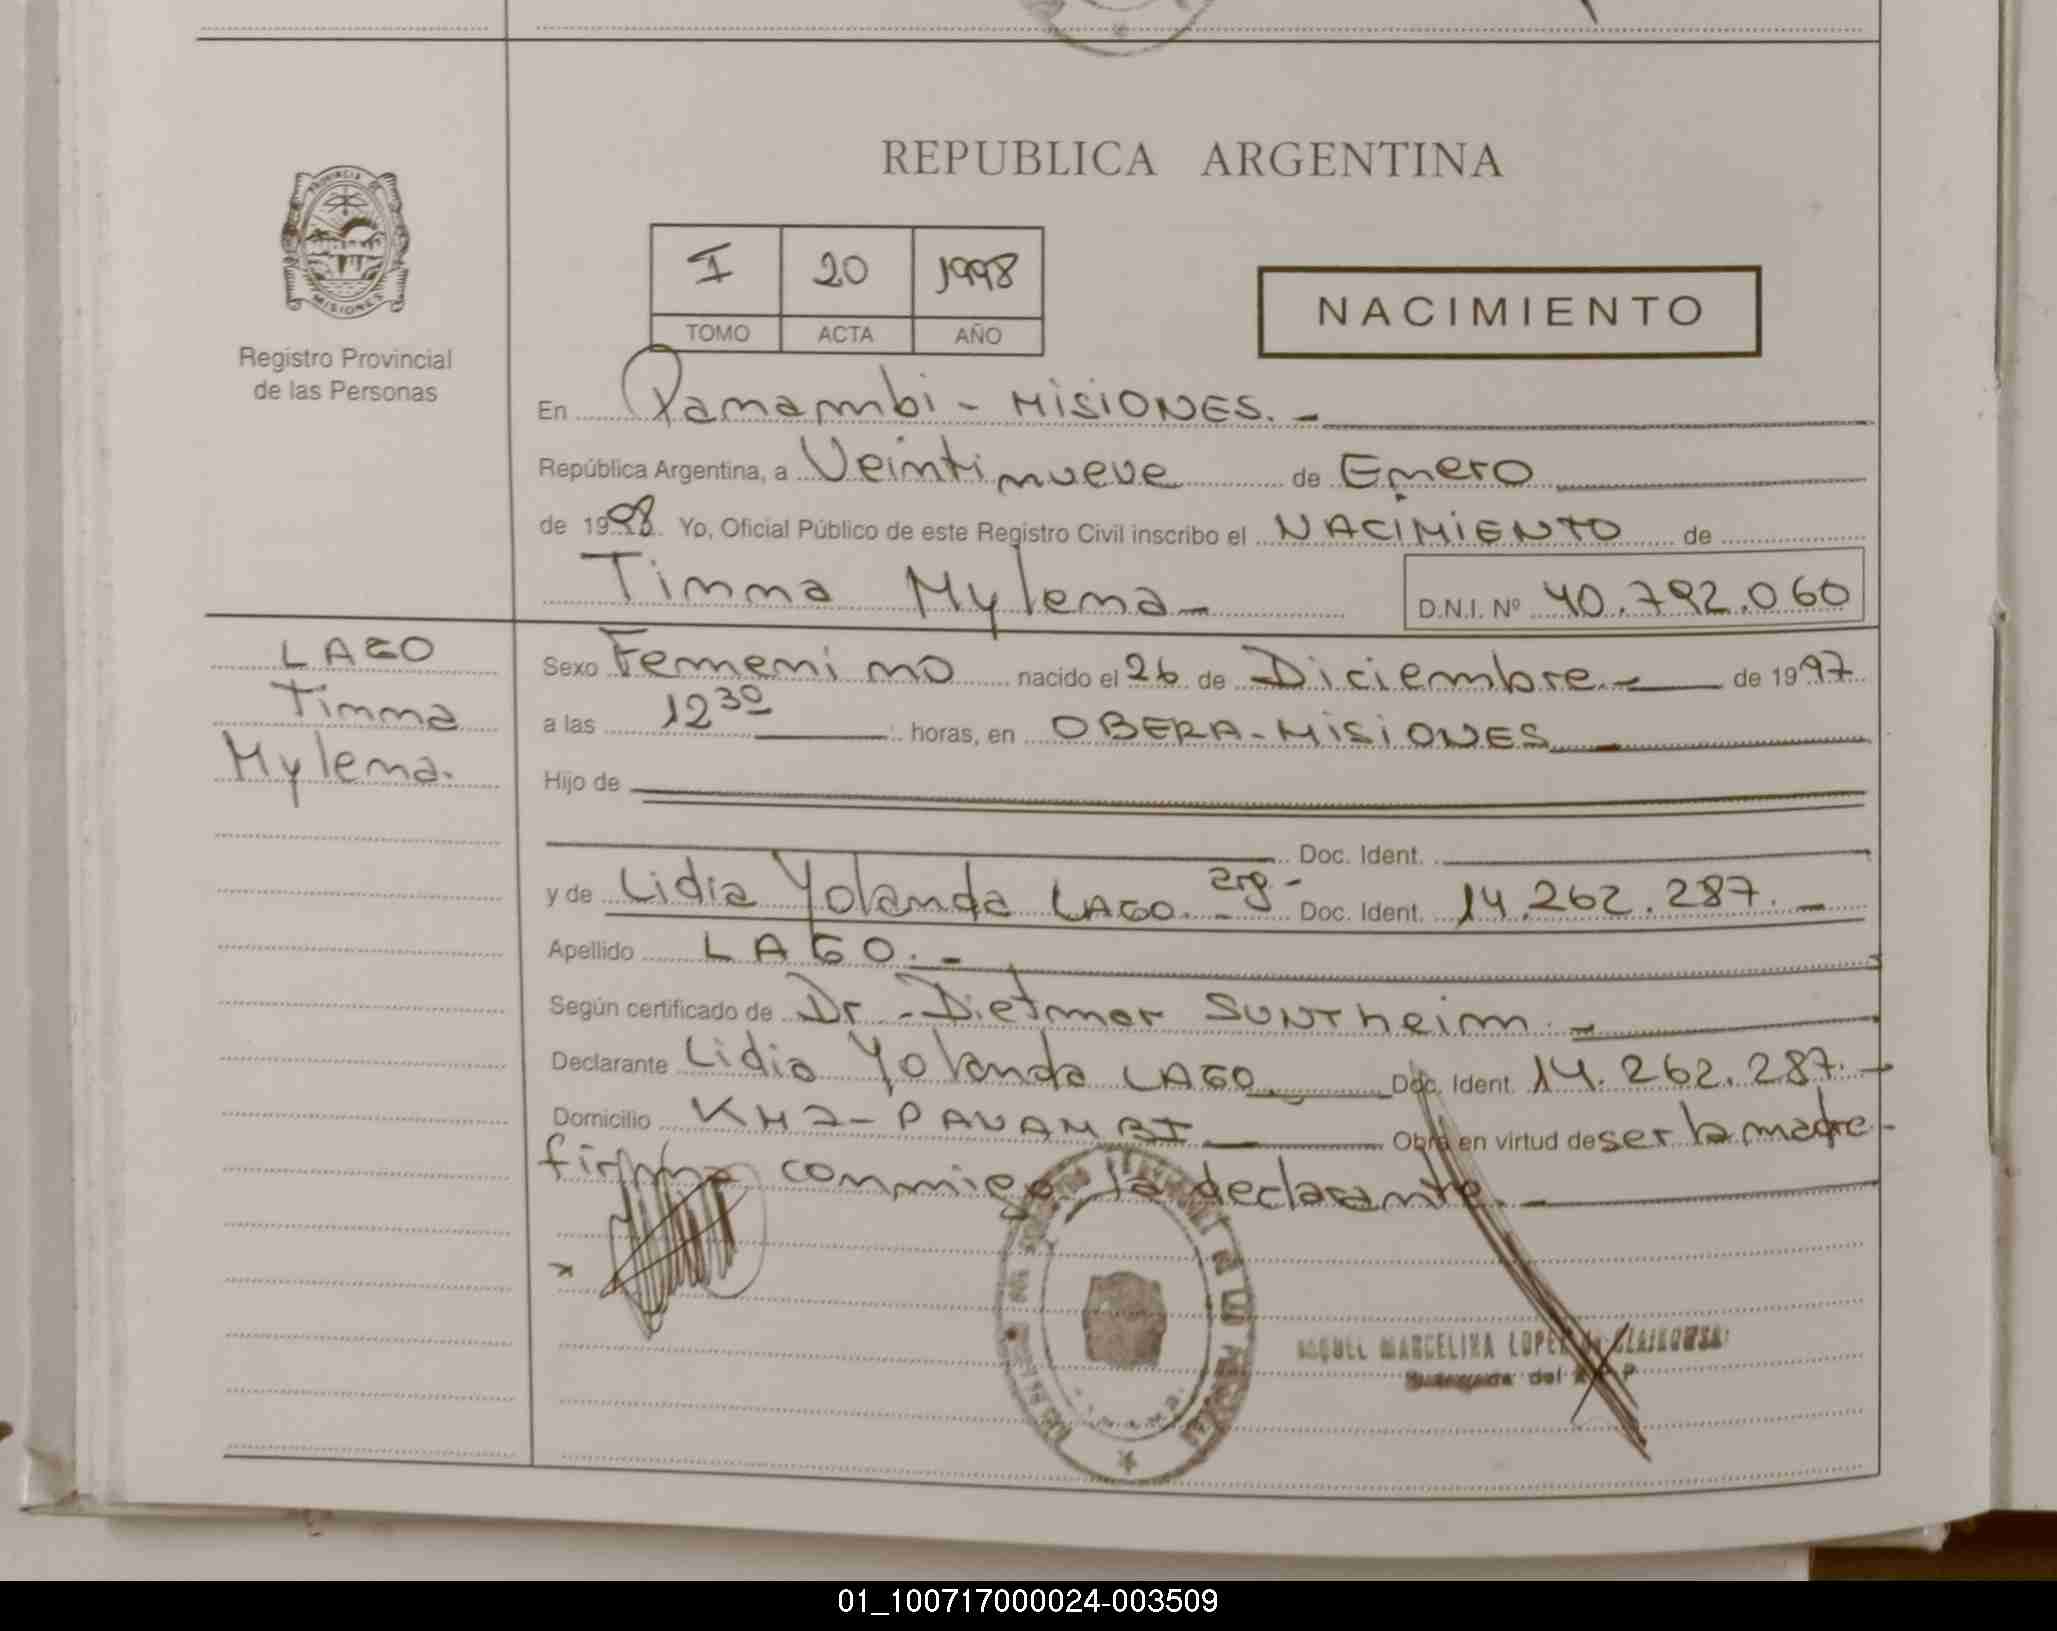 REPUBLICA ARGENTINA
PROVINCIA DE
MISIONES
Registro Provincial
de las Personas
I 20 1998
TOMO ACTA AÑO
NACIMIENTO
En Panambi - MISIONES. -
República Argentina, a Veintinueve de Enero
de 1998. Yo, Oficial Público de este Registro Civil inscribo el NACIMIENTO de
Timna Mylena - D.N.I. Nº 40.792.060
LAGO
Timna
Mylena.
Sexo Femenino nacido el 26 de Diciembre. - de 1997
a las 12 30 horas, en OBERA - MISIONES
Hijo de
Doc. Ident.
y de Lidia Yolanda LAGO. - arg. - Doc. Ident. 14.262.287. -
Apellido LAGO. -
Según certificado de Dr. Dietmar SUNTheim. -
Declarante Lidia Yolanda LAGO Doc. Ident. 14.262.287. -
Domicilio KM 2 - PANAMBI Obra en virtud de ser la madre -
firma conmigo la declarante. -
x
MARCELINA LOPEZ
del
01_100717000024-003509